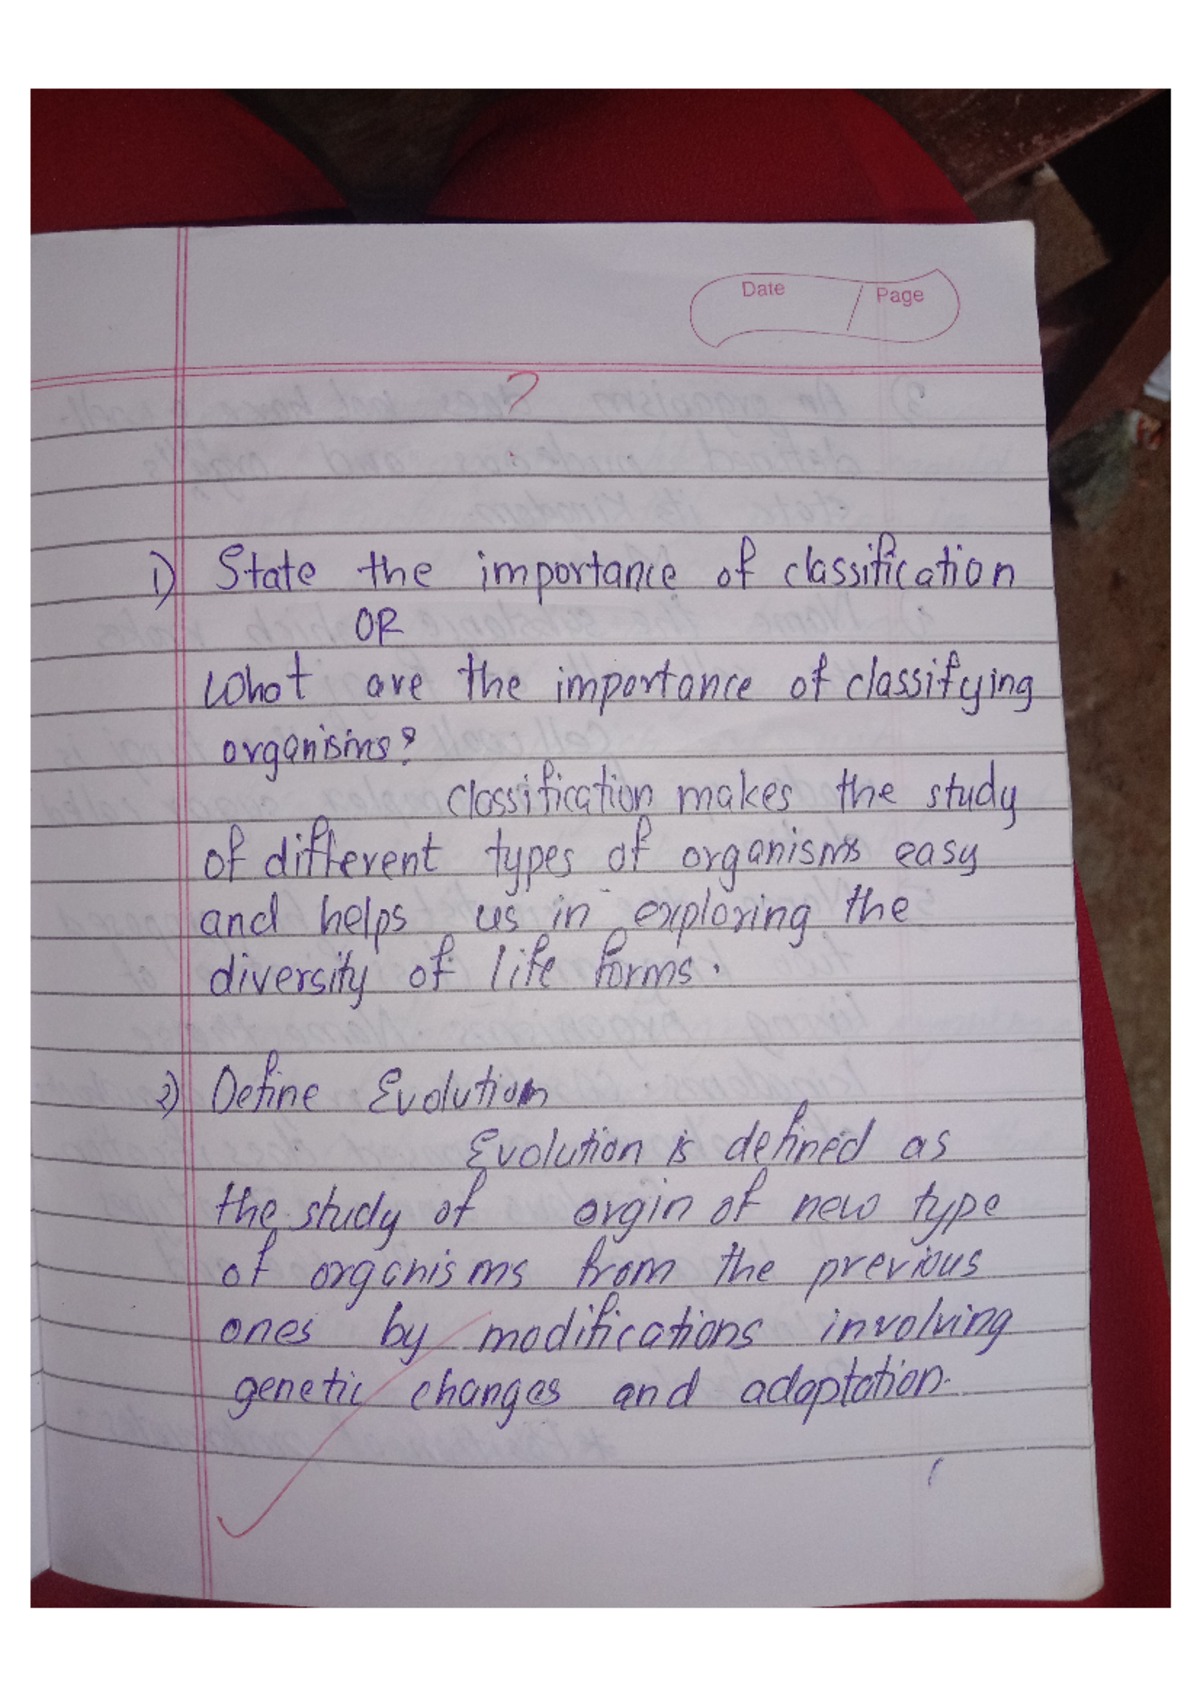 Date / Page
?
1) State the importance of classification
OR
What are the importance of classifying
organisms?
Classification makes the study
of different types of organisms easy
and helps us in exploring the
diversity of life forms.
2) Define Evolution
Evolution is defined as
the study of orgin of new type
of organisms from the previous
ones by modifications involving
genetic changes and adaptation.